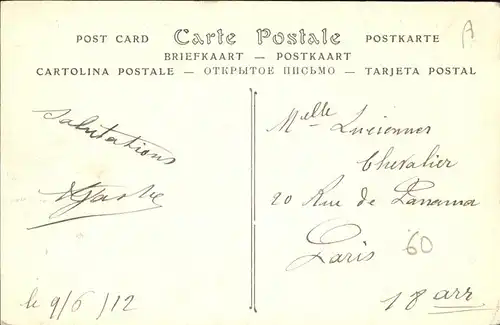 A
POST CARD Carte Postale POSTKARTE
BRIEFKAART — POSTKAART
CARTOLINA POSTALE — ОТКРЫТОЕ ПИСЬМО — TARJETA POSTAL
Salutations
le 9/6/12
Melle
Chevalier
20 Rue de Panama
Paris 60
18 arr